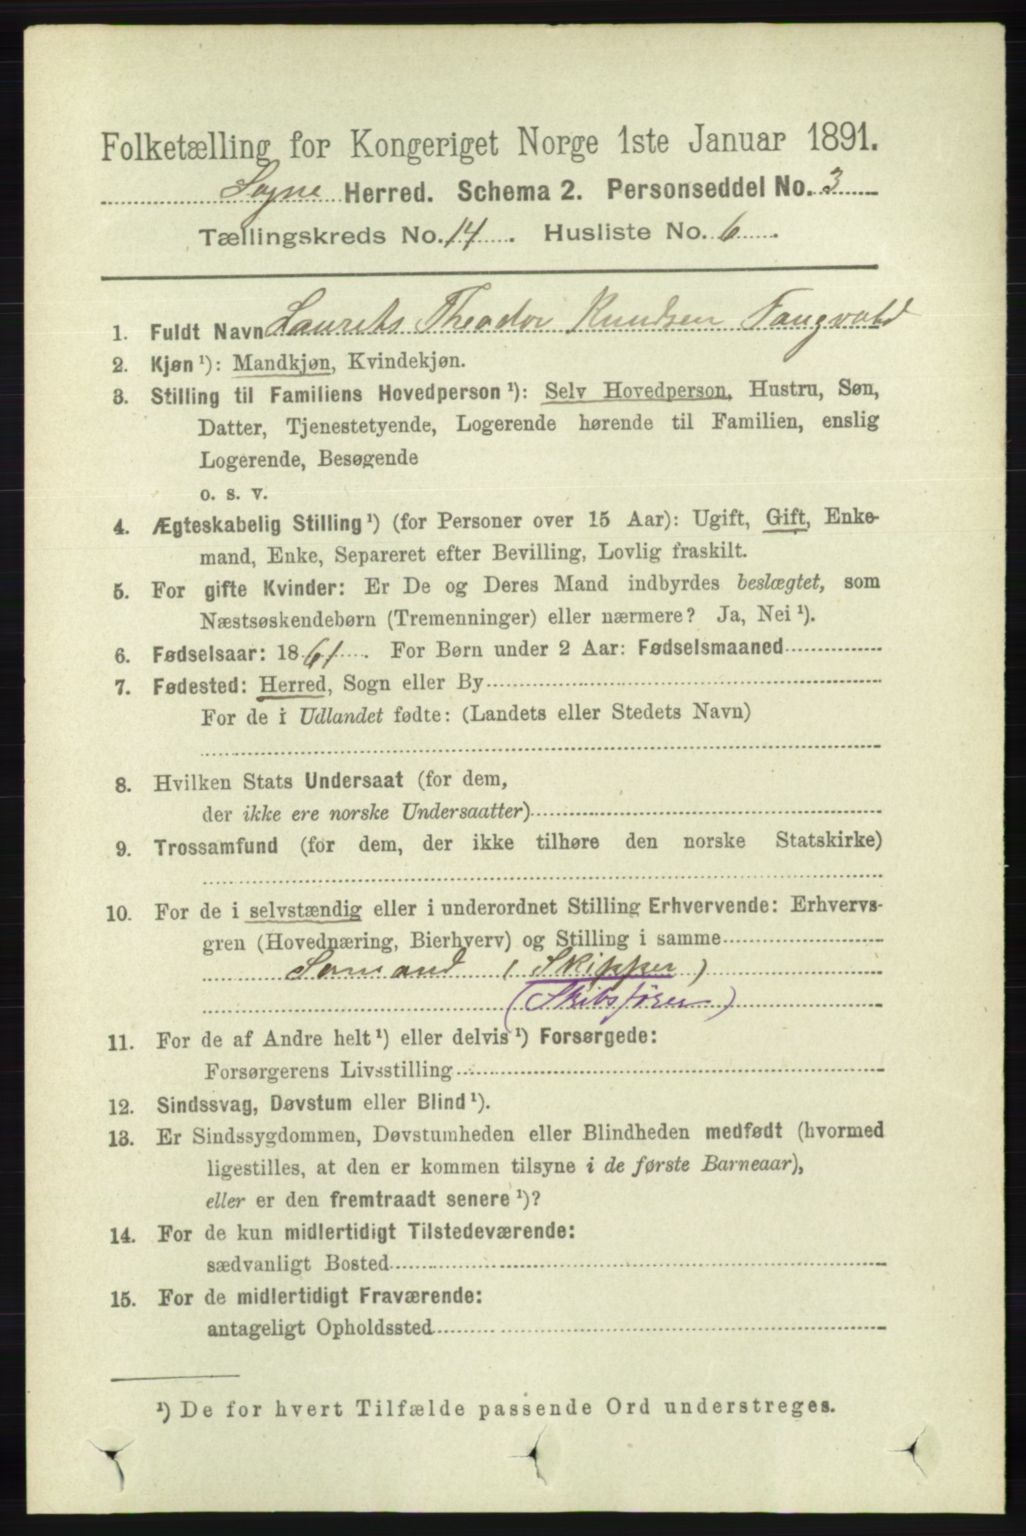 Folketælling for Kongeriget Norge 1ste Januar 1891.
Søgne Herred. Schema 2. Personseddel No. 3
Tællingskreds No. 14. Husliste No. 6.
1. Fuldt Navn Laurits Theodor Knudsen Tangvald
2. Kjøn ¹): Mandkjøn, Kvindekjøn.
3. Stilling til Familiens Hovedperson ¹): Selv Hovedperson, Hustru, Søn,
Datter, Tjenestetyende, Logerende hørende til Familien, enslig
Logerende, Besøgende
o. s. v.
4. Ægteskabelig Stilling ¹) (for Personer over 15 Aar): Ugift, Gift, Enke-
mand, Enke, Separeret efter Bevilling, Lovlig fraskilt.
5. For gifte Kvinder: Er De og Deres Mand indbyrdes beslægtet, som
Næstsøskendebørn (Tremenninger) eller nærmere? Ja, Nei ¹).
6. Fødselsaar: 1861. For Børn under 2 Aar: Fødselsmaaned
7. Fødested: Herred, Sogn eller By
For de i Udlandet fødte: (Landets eller Stedets Navn)
8. Hvilken Stats Undersaat (for dem,
der ikke ere norske Undersaatter)
9. Trossamfund (for dem, der ikke tilhøre den norske Statskirke)
10. For de i selvstændig eller i underordnet Stilling Erhvervende: Erhvervs-
gren (Hovednæring, Bierhverv) og Stilling i samme
Sømand (Skipper)
(Skibsfører)
11. For de af Andre helt ¹) eller delvis ¹) Forsørgede:
Forsørgerens Livsstilling
12. Sindssvag, Døvstum eller Blind ¹).
13. Er Sindssygdommen, Døvstumheden eller Blindheden medfødt (hvormed
ligestilles, at den er kommen tilsyne i de første Barneaar),
eller er den fremtraadt senere ¹)?
14. For de kun midlertidigt Tilstedeværende:
sædvanligt Bosted
15. For de midlertidigt Fraværende:
antageligt Opholdssted
¹) De for hvert Tilfælde passende Ord understreges.